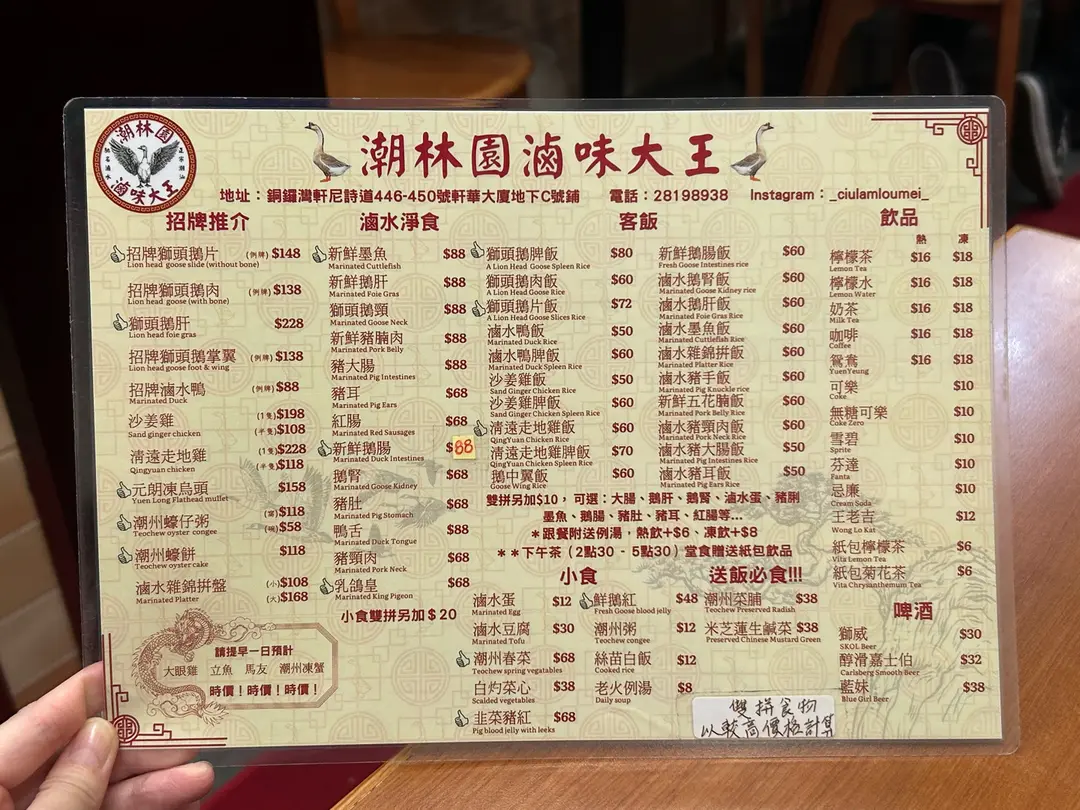 潮林園
滷味大王
潮林園滷味大王
地址：銅鑼灣軒尼詩道446-450號軒華大廈地下C號鋪 電話：28198938 Instagram：_ciulamloumei_
招牌推介
招牌獅頭鵝片 (例牌) $148
Lion head goose slide (without bone)
招牌獅頭鵝肉 (例牌) $138
Lion head goose (with bone)
獅頭鵝肝 $228
Lion head foie gras
招牌獅頭鵝掌翼 (例牌) $138
Lion head goose foot & wing
招牌滷水鴨 (例牌) $88
Marinated Duck
沙姜雞 (1隻) $198
Sand ginger chicken (半隻) $108
清遠走地雞 (1隻) $228
Qingyuan chicken (半隻) $118
元朗凍烏頭 $158
Yuen Long Flathead mullet
潮州蠔仔粥 (窩) $118
Teochew oyster congee (碗) $58
潮州蠔餅 $118
Teochew oyster cake
滷水雜錦拼盤 (小) $108
Marinated Platter (大) $168
滷水淨食
新鮮墨魚 $88
Marinated Cuttlefish
新鮮鵝肝 $88
Marinated Foie Gras
獅頭鵝頸 $88
Marinated Goose Neck
新鮮豬腩肉 $88
Marinated Pork Belly
豬大腸 $88
Marinated Pig Intestines
豬耳 $68
Marinated Pig Ears
紅腸 $68
Marinated Red Sausages
新鮮鵝腸 $88
Marinated Duck Intestines
鵝腎 $68
Marinated Goose Kidney
豬肚 $68
Marinated Pig Stomach
鴨舌 $88
Marinated Duck Tongue
豬頸肉 $68
Marinated Pork Neck
乳鴿皇 $68
Marinated King Pigeon
小食雙拼另加$20
客飯
獅頭鵝脾飯 $80
A Lion Head Goose Spleen Rice
獅頭鵝肉飯 $60
A Lion Head Goose Rice
獅頭鵝片飯 $72
A Lion Head Goose Slices Rice
滷水鴨飯 $50
Marinated Duck Rice
滷水鴨脾飯 $60
Marinated Duck Spleen Rice
沙姜雞飯 $50
Sand Ginger Chicken Rice
沙姜雞脾飯 $60
Sand Ginger Chicken Spleen Rice
清遠走地雞飯 $60
QingYuan Chicken Rice
清遠走地雞脾飯 $70
QingYuan Chicken Spleen Rice
鵝中翼飯 $60
Goose Wing Rice
新鮮鵝腸飯 $60
Fresh Goose Intestines rice
滷水鵝腎飯 $60
Marinated Goose Kidney rice
滷水鵝肝飯 $60
Marinated Foie Gras Rice
滷水墨魚飯 $60
Marinated Cuttlefish Rice
滷水雜錦拼飯 $60
Marinated Platter Rice
滷水豬手飯 $60
Marinated Pig Knuckle rice
新鮮五花腩飯 $60
Marinated Pork Belly Rice
滷水豬頸肉飯 $60
Marinated Pork Neck Rice
滷水豬大腸飯 $50
Marinated Pig Intestines Rice
滷水豬耳飯 $50
Marinated Pig Ears Rice
雙拼另加$10，可選：大腸、鵝肝、鵝腎、滷水蛋、豬脷
墨魚、鵝腸、豬肚、豬耳、紅腸等...
*跟餐附送例湯，熱飲+$6、凍飲+$8
**下午茶（2點30 - 5點30）堂食贈送紙包飲品
小食
滷水蛋 $12
Marinated Egg
滷水豆腐 $30
Marinated Tofu
潮州春菜 $68
Teochew spring vegetables
白灼菜心 $38
Scalded vegetables
韭菜豬紅 $68
Pig blood jelly with leeks
鮮鵝紅 $48
Fresh Goose blood jelly
潮州粥 $12
Teochew congee
絲苗白飯 $12
Cooked rice
老火例湯 $8
Daily soup
送飯必食!!!
潮州菜脯 $38
Teochew Preserved Radiah
米芝蓮生鹹菜 $38
Preserved Chinese Mustard Green
飲品
熱 凍
檸檬茶 $16 $18
Lemon Tea
檸檬水 $16 $18
Lemon Water
奶茶 $16 $18
Milk Tea
咖啡 $16 $18
Coffee
鴛鴦 $16 $18
YuenYeung
可樂 $10
Coke
無糖可樂 $10
Coke Zero
雪碧 $10
Sprite
芬達 $10
Fanta
忌廉 $10
Cream Soda
王老吉 $12
Wong Lo Kat
紙包檸檬茶 $6
Vita Lemon Tea
紙包菊花茶 $6
Vita Chrysanthemum Tea
啤酒
獅威 $30
SKOL Beer
醇滑嘉士伯 $32
Carlsberg Smooth Beer
藍妹 $38
Blue Girl Beer
請提早一日預計
大眼雞 立魚 馬友 潮州凍蟹
時價！時價！時價！
雙拼食物
以較高價格計算